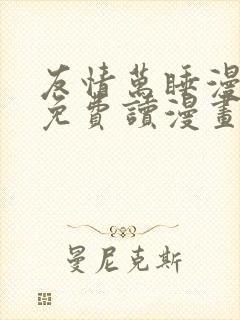 友情萬睡漫
免費讀漫畫
曼尼克斯